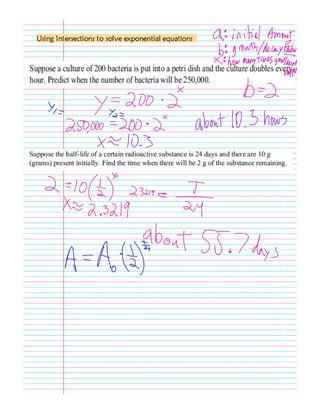 Using Intersections to solve exponential equations
a: initial Amount
b: growth/decay factor
x: how many times growth
Suppose a culture of 200 bacteria is put into a petri dish and the culture doubles every
hour. Predict when the number of bacteria will be 250,000.
b=2
y₁= y=200·2ˣ
y₂=
250,000=200·2ˣ about 10.3 hours
x≈10.3
Suppose the half-life of a certain radioactive substance is 24 days and there are 10 g
(grams) present initially. Find the time when there will be 2 g of the substance remaining.
2=10(1/2)ˣ 2.3219= T/24
x≈2.3219
about 55.7 days
A=A₀(1/2)